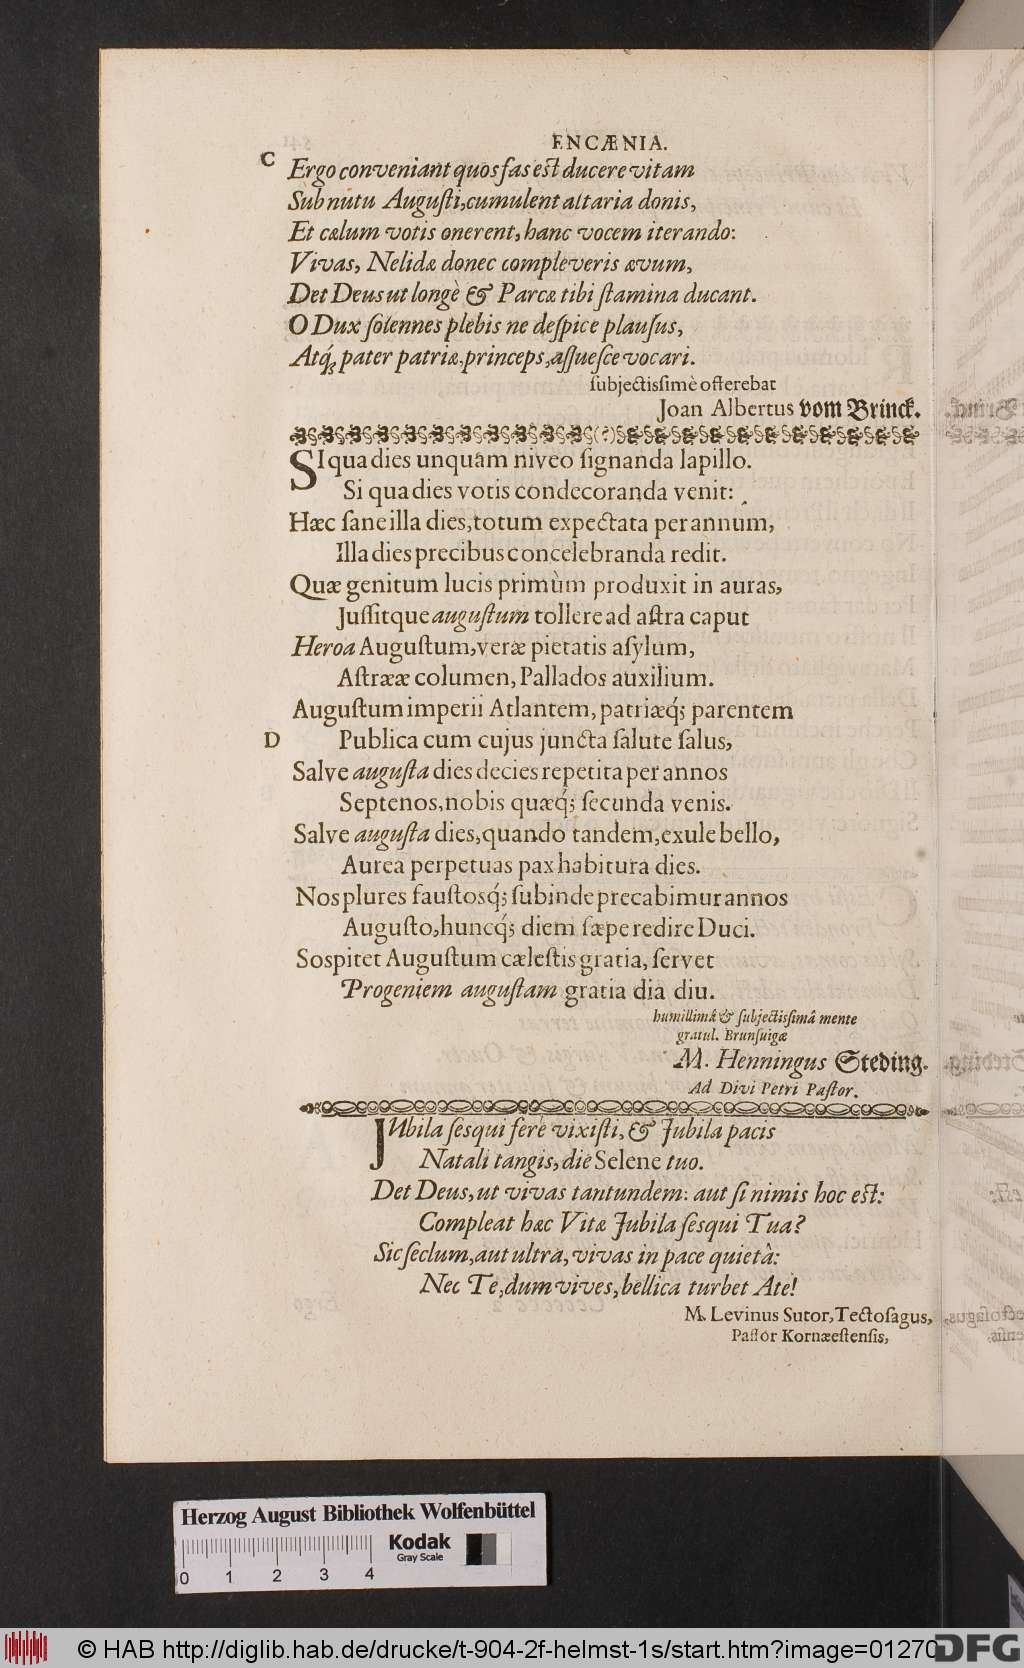 ENCÆNIA.
C
Ergo conveniant quos fas est ducere vitam
Sub nutu Augusti, cumulent altaria donis,
Et cælum votis onerent, hanc vocem iterando:
Vivas, Nelidæ donec compleveris ævum,
Det Deus ut longè & Parcæ tibi stamina ducant.
O Dux solennes plebis ne despice plausus,
Atq́; pater patriæ, princeps, assuesce vocari.
subjectissimè offerebat
Joan Albertus vom Brinck.
SI qua dies unquam niveo signanda lapillo.
Si qua dies votis condecoranda venit:
Hæc sane illa dies, totum expectata per annum,
Illa dies precibus concelebranda redit.
Quæ genitum lucis primùm produxit in auras,
Jussitque augustum tollere ad astra caput
Heroa Augustum, veræ pietatis asylum,
Astrææ columen, Pallados auxilium.
Augustum imperii Atlantem, patriæq́; parentem
D
Publica cum cujus juncta salute salus,
Salve augusta dies decies repetita per annos
Septenos, nobis quæq́; secunda venis.
Salve augusta dies, quando tandem, exule bello,
Aurea perpetuas pax habitura dies.
Nos plures faustosq́; subinde precabimur annos
Augusto, huncq́; diem sæpe redire Duci.
Sospitet Augustum cælestis gratia, servet
Progeniem augustam gratia dia diu.
humillimâ & subjectissimâ mente
gratul. Brunsuigæ
M. Henningus Steding.
Ad Divi Petri Pastor.
JUbila sesqui fere vixisti, & Jubila pacis
Natali tangis, die Selene tuo.
Det Deus, ut vivas tantundem: aut si nimis hoc est:
Compleat hæc Vitæ Jubila sesqui Tua?
Sic seclum, aut ultra, vivas in pace quietâ:
Nec Te, dum vives, bellica turbet Ate!
M. Levinus Sutor, Tectosagus,
Pastor Kornæestensis,
Herzog August Bibliothek Wolfenbüttel
Kodak
Gray Scale
0 1 2 3 4
© HAB http://diglib.hab.de/drucke/t-904-2f-helmst-1s/start.htm?image=01270
DFG